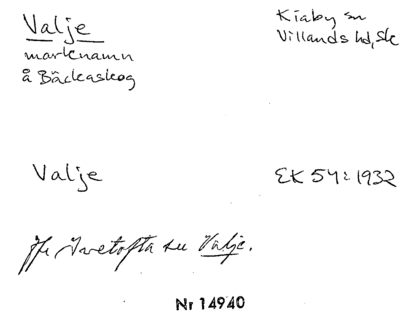 Valje
Kiaby sn
marknamn
Villands hd, Sk
å Bäckaskog
Valje
EK 54:1932
Jfr Ivetofta sn Valje.
Nr 14940